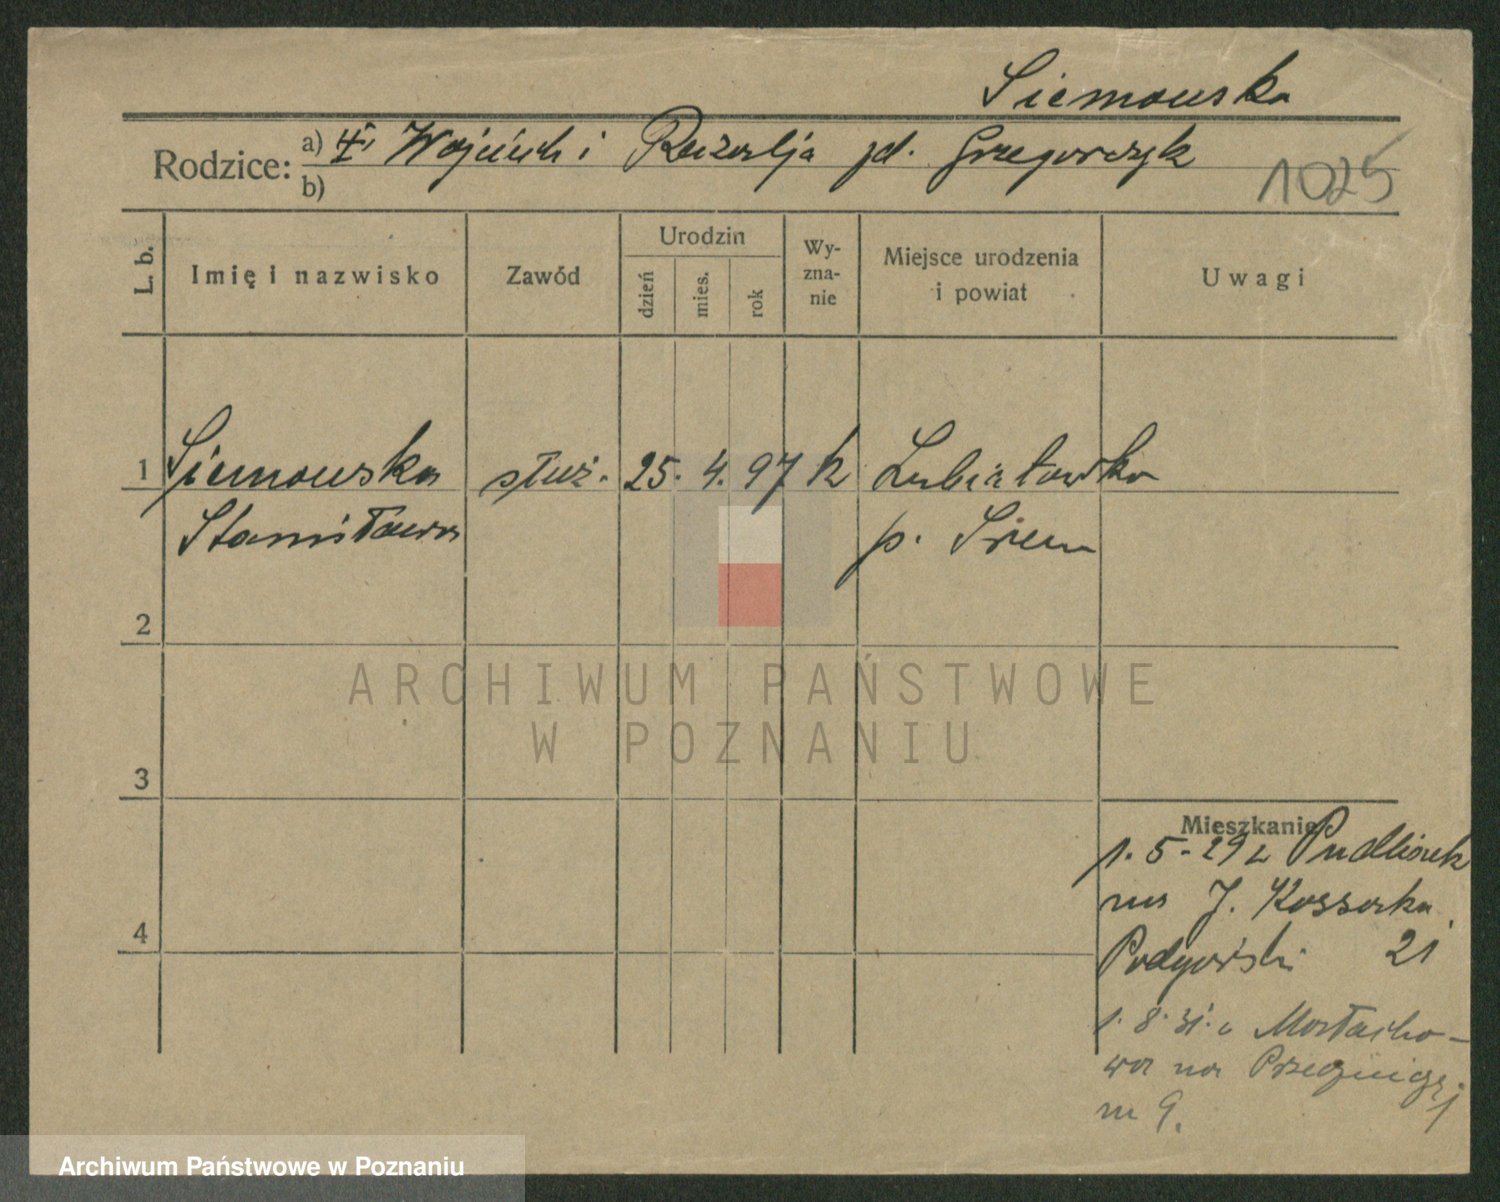 Siemowska
Rodzice: a) Wojciech i Rozalja zd. Grzegorczyk
b)
1025
L. b.
Imię i nazwisko
Zawód
Urodzin
dzień
mies.
rok
Wy-
zna-
nie
Miejsce urodzenia
i powiat
Uwagi
1 Siemowska służ. 25. 4. 97 k Lubiatowko
Stanisława p. Śrem
2
ARCHIWUM PAŃSTWOWE
W POZNANIU
3
Mieszkanie
1. 5. 29 z Pudliszek
na J. Kossaka
21
4
1. 8. 31. z
wa na
m 9.
Archiwum Państwowe w Poznaniu